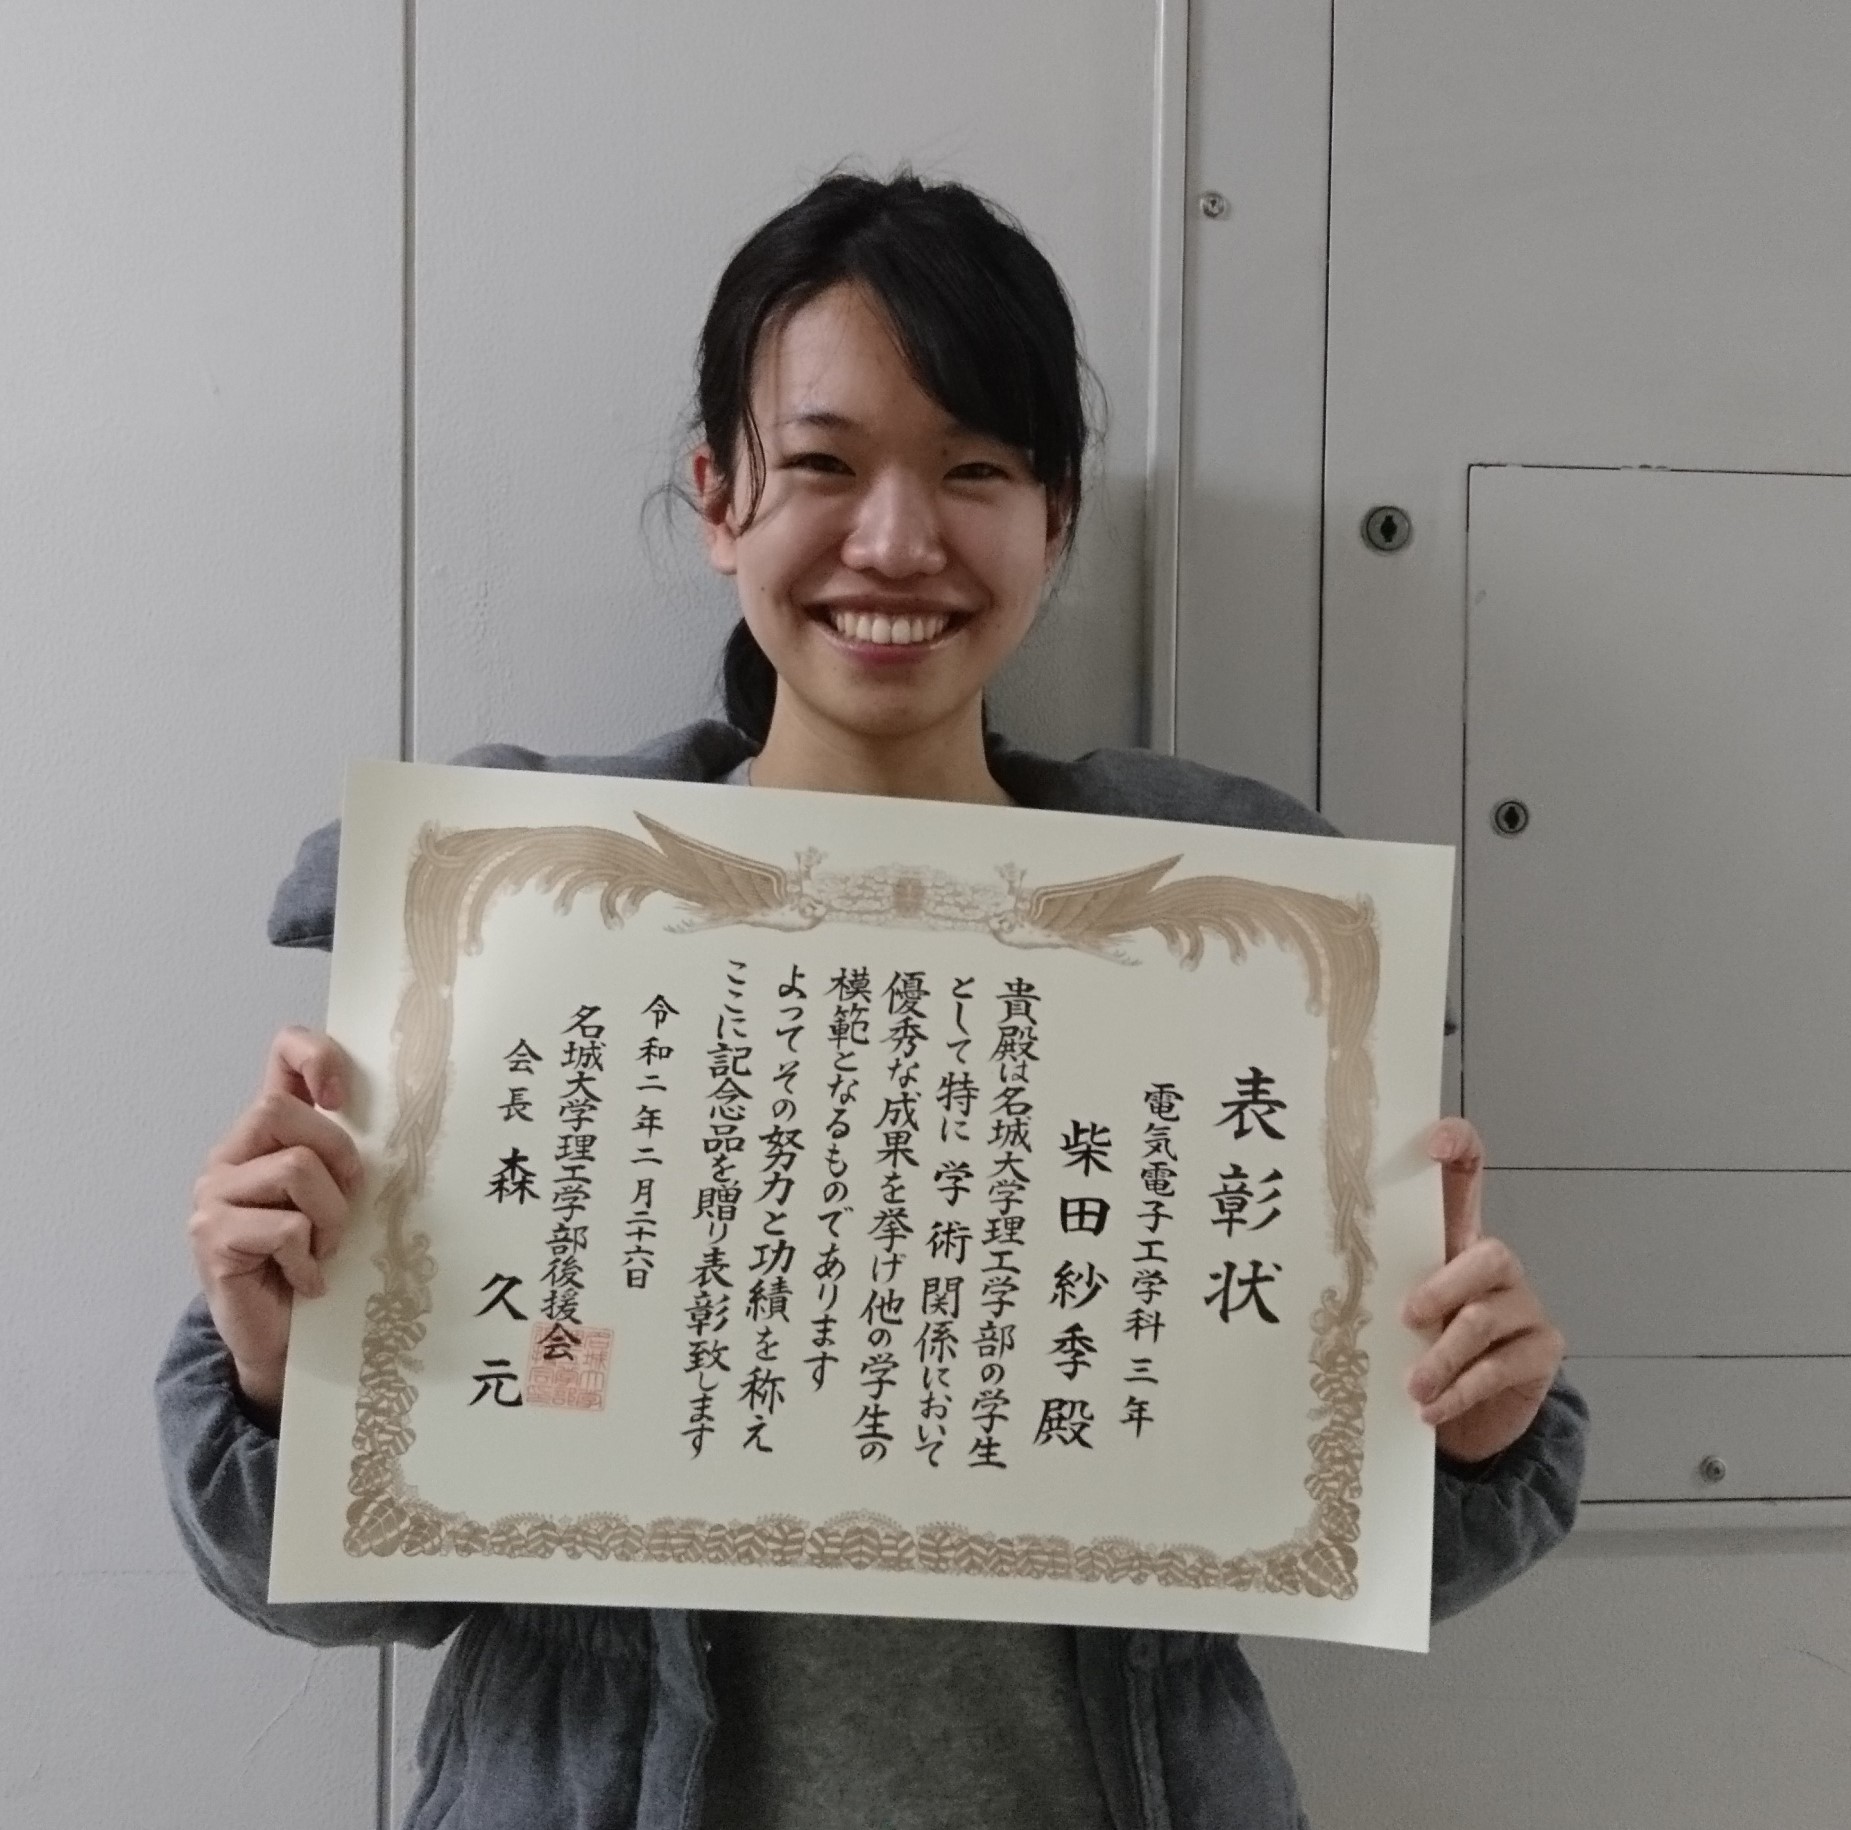 表彰状
電気電子工学科三年
柴田紗季殿
貴殿は名城大学理工学部の学生
として特に学術関係において
優秀な成果を挙げ他の学生の
模範となるものであります
よってその努力と功績を称え
ここに記念品を贈り表彰致します
令和二年二月二十六日
名城大学理工学部後援会
会長森久元